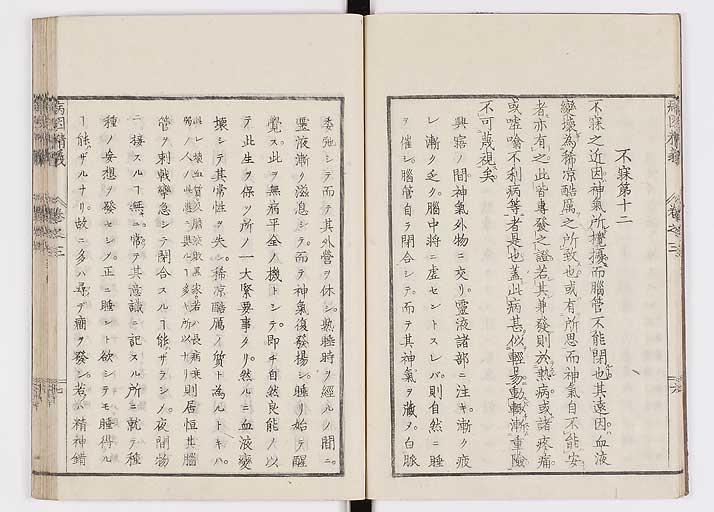 不寐第十二
不寐之近因神氣所攪擾而腦管不能閉也其遠因血液
變壞為稀凉酷厲之所致也或有所思而神氣自不能安
者亦有之此皆專發之證若其兼發則於熱病或諸疼痛
或喘喻不利病等者是也蓋此病甚似輕易動輒漸重險
不可蔑視矣
興寤ノ間神氣外物ニ交リ。靈液諸部ニ注キ。漸ク疲
レ漸ク乏ク。腦中將ニ虛セントスレバ。則自然ニ睡
ヲ催シ。腦管自ラ閉合シテ。而テ其神氣ヲ藏メ。白脈
委弛シテ而テ其外營ヲ休シ。熟睡時ヲ經ルノ間ニ。
靈液漸ク滋息シテ。而テ神氣復發揚シ。睡リ始テ醒
覺ス。此ヲ無病平全ノ機トシテ。即チ自然良能ノ以
テ此生ヲ保ツ所ノ一大緊要事タリ。然ルニ血液變
壞シテ其常性ヲ失シ。稀凉酷厲ノ質ト為ルトキハ。
則居恒其腦
管ヲ刺戟攣急シテ閉合スルヿ能ザラシメ。夜間物
ニ接スルヿ無ニ。常ニ其意識ニ記スル所ニ就テ種
種ノ妄想ヲ發セシメ。正ニ睡ント欲シテモ睡得ル
ヿ能ザルナリ。故ニ多ハ尋デ癇ヲ發シ。若ハ精神錯
病因精義 卷之三